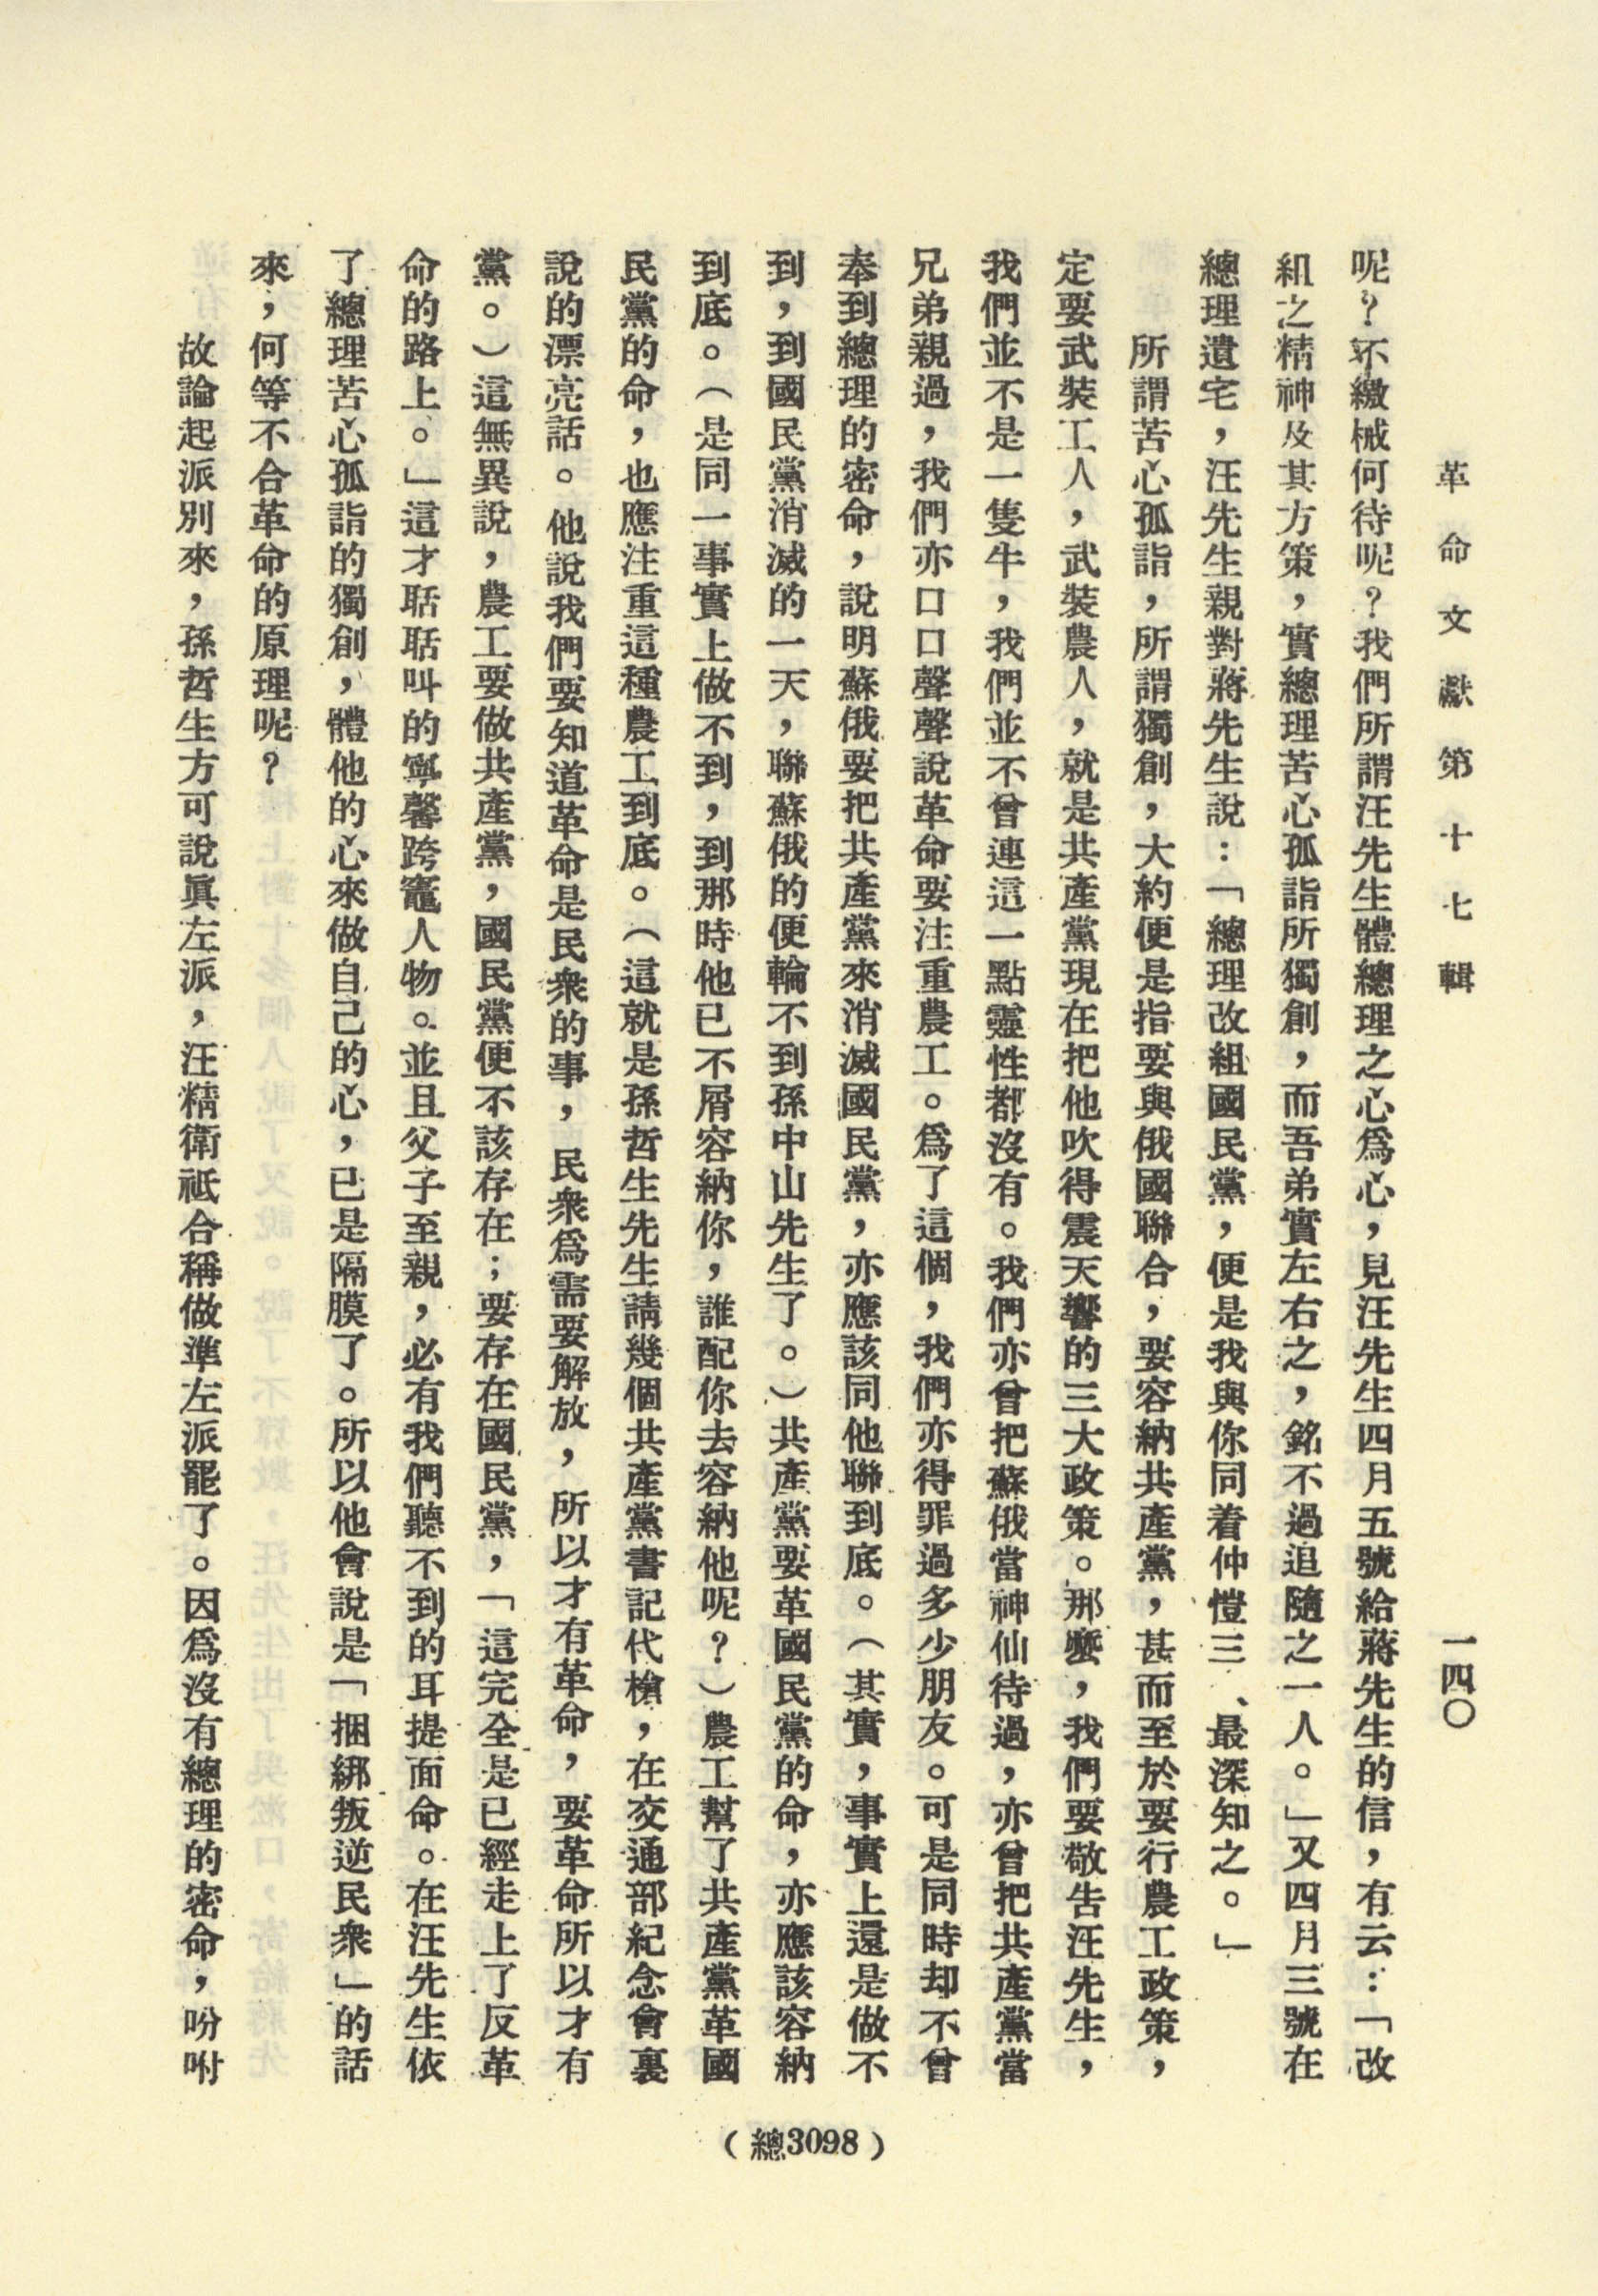 革命文獻第十七輯
一四〇
呢？不繳械何待呢？我們所謂汪先生體總理之心爲心，見汪先生四月五號給蔣先生的信，有云：「改
組之精神及其方策，實總理苦心孤詣所獨創，而吾弟實左右之，銘不過追隨之一人。」又四月三號在
總理遺宅，汪先生親對蔣先生說：「總理改組國民黨，便是我與你同着仲愷三、最深知之。」
所謂苦心孤詣，所謂獨創，大約便是指要與俄國聯合，要容納共產黨，甚而至於要行農工政策，
定要武裝工人，武裝農人，就是共產黨現在把他吹得震天響的三大政策。那麼，我們要敬告汪先生，
我們並不是一隻牛，我們並不曾連這一點靈性都沒有。我們亦曾把蘇俄當神仙待過，亦曾把共產黨當
兄弟親過，我們亦口口聲聲說革命要注重農工。爲了這個，我們亦得罪過多少朋友。可是同時却不曾
奉到總理的密命，說明蘇俄要把共產黨來消滅國民黨，亦應該同他聯到底。（其實，事實上還是做不
到，到國民黨消滅的一天，聯蘇俄的便輪不到孫中山先生了。）共產黨要革國民黨的命，亦應該容納
到底。（是同一事實上做不到，到那時他已不屑容納你，誰配你去容納他呢？）農工幫了共產黨革國
民黨的命，也應注重這種農工到底。（這就是孫哲生先生請幾個共產黨書記代槍，在交通部紀念會裏
說的漂亮話。他說我們要知道革命是民衆的事，民衆爲需要解放，所以才有革命，要革命所以才有
黨。）這無異說，農工要做共產黨，國民黨便不該存在；要存在國民黨，「這完全是已經走上了反革
命的路上。」這才聒聒叫的寧馨跨竈人物。並且父子至親，必有我們聽不到的耳提面命。在汪先生依
了總理苦心孤詣的獨創，體他的心來做自己的心，已是隔膜了。所以他會說是「捆綁叛逆民衆」的話
來，何等不合革命的原理呢？
故論起派別來，孫哲生方可說眞左派，汪精衛祗合稱做準左派罷了。因爲沒有總理的密命，吩咐
（總3098）